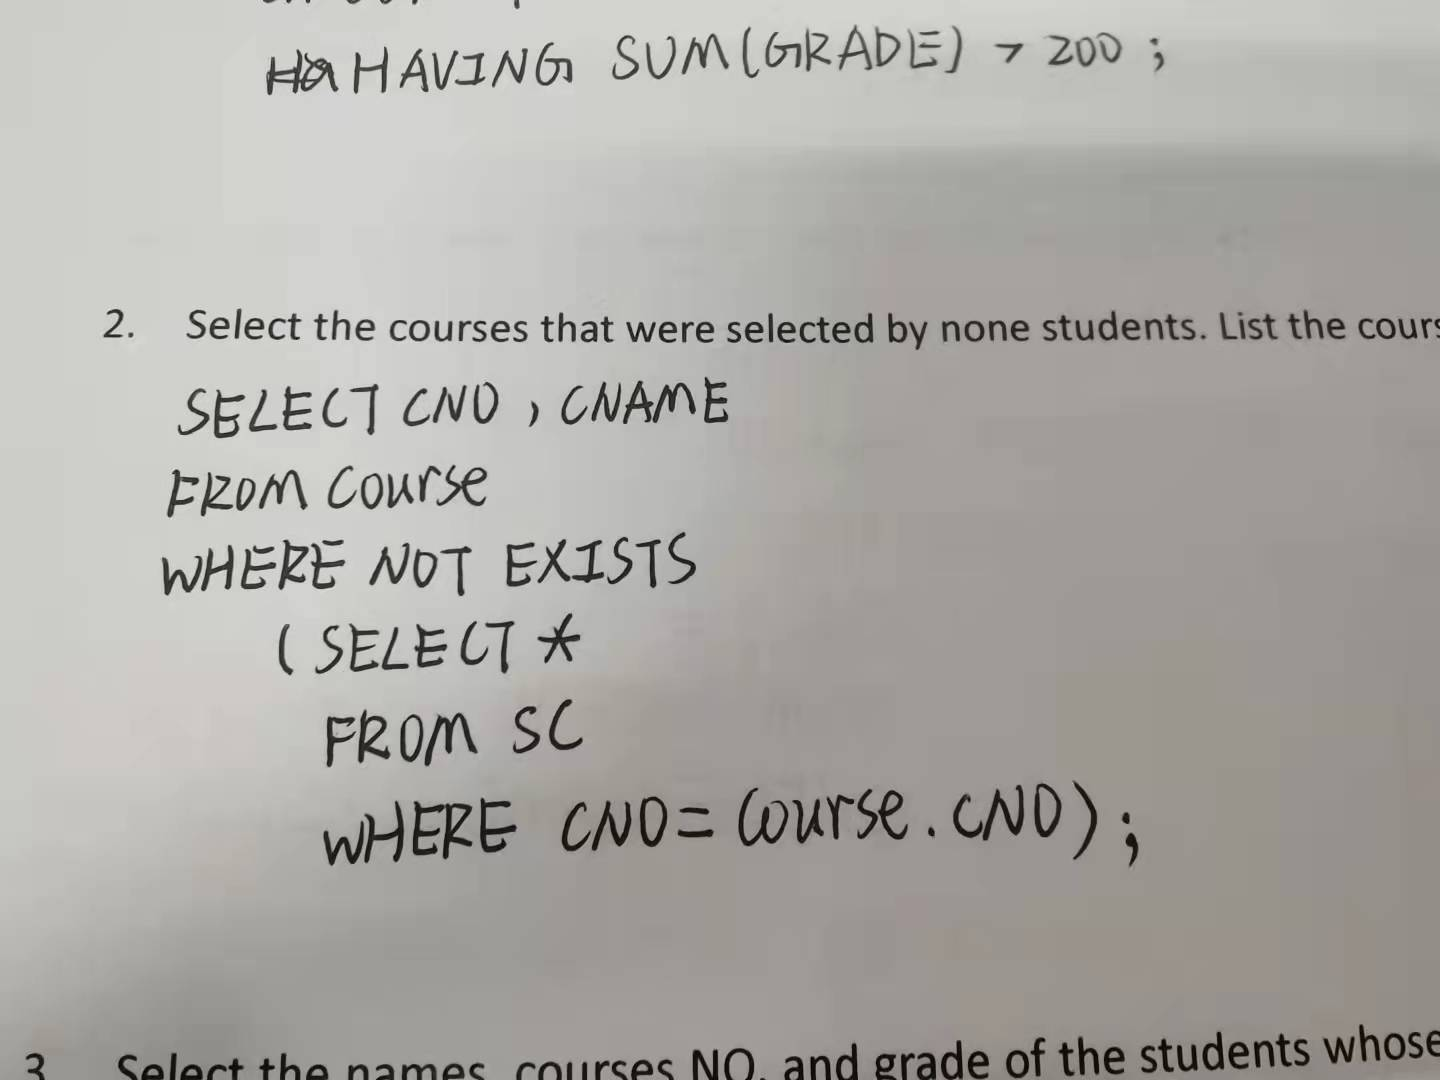 HAVING SUM(GRADE) > 200 ;
2. Select the courses that were selected by none students. List the cours
SELECT CNO , CNAME
FROM Course
WHERE NOT EXISTS
( SELECT *
FROM SC
WHERE CNO = Course . CNO ) ;
3 Select the names, courses NO, and grade of the students whose